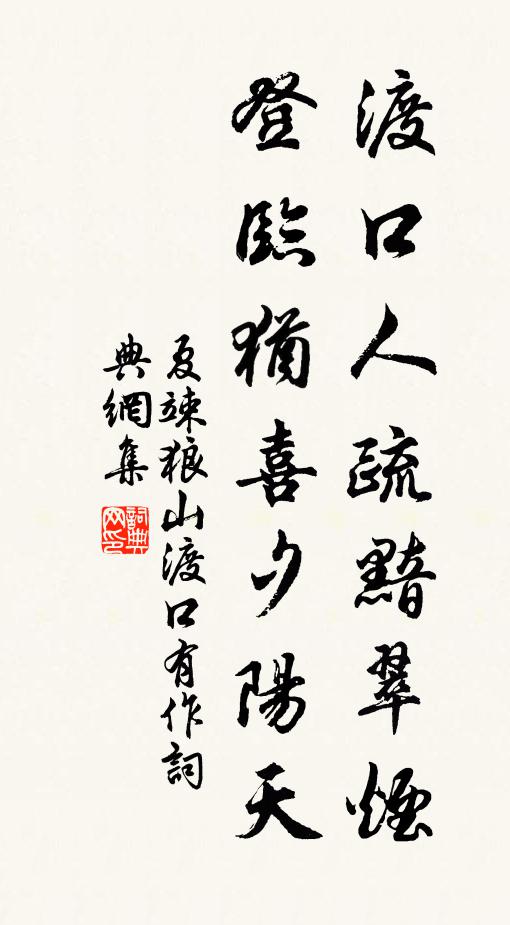 渡口人疏黯翠煙
登臨猶喜夕陽天
夏竦狼山渡口有作詞
典網集
詞典
网印